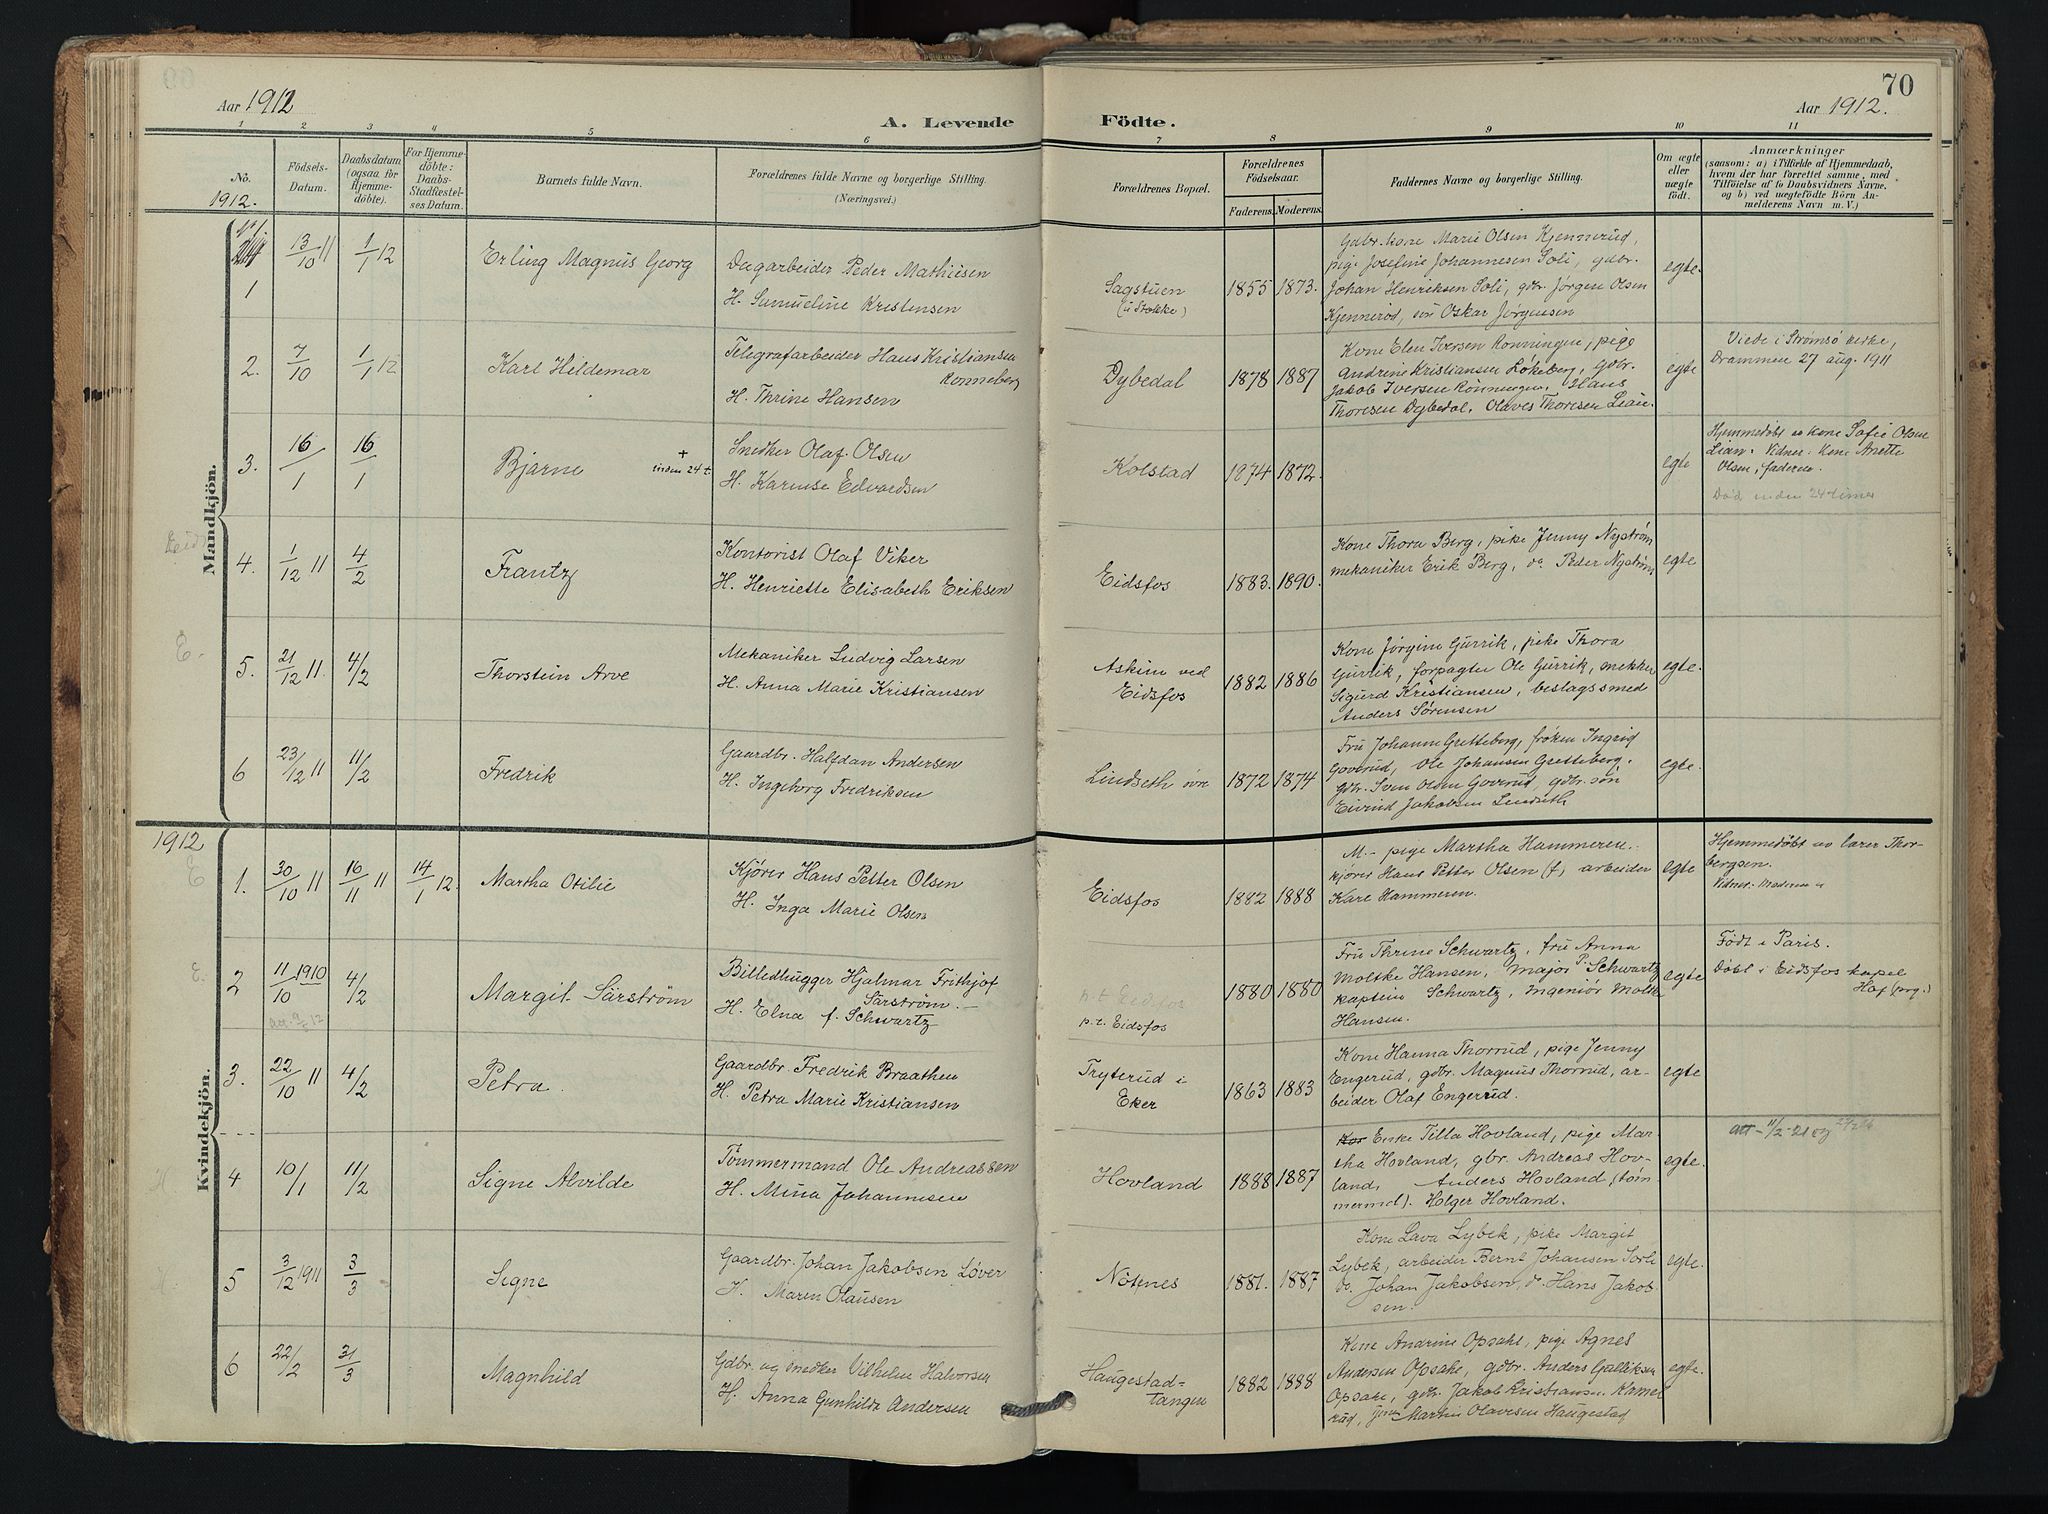 Aar 1912
A. Levende
Födte.
Aar 1912.
70
1 2 3 4 5 6 7 8 9 10 11
Nö.
1912.
Födsels-
Datum.
Daabsdatum
(ogsaa for
Hjemme-
döbte).
For Hjemme-
döbte:
Daabs-
Stadfæstel-
ses Datum.
Barnets fulde Navn.
Forældrenes fulde Navne og borgerlige Stilling.
(Næringsvei.)
Forældrenes Bopæl.
Forældrenes
Födselsaar.
Faderens. Moderens.
Faddernes Navne og borgerlige Stilling.
Om ægte
eller
uægte
født.
Anmærkninger
(saasom: a) i Tilfælde af Hjemmedaab,
hvem der har forrettet samme, med
Tilföielse af to Daabsvidners Navne,
og b) ved uægtefödte Börn An-
melderens Navn m. V.)
Mandkjön.
1
13/10 11
1/1 12
Erling Magnus Georg
Dagarbeider Peder Mathiesen
H. Samueline Kristensen
Sagstuen
(u Stokke)
1855 1873.
Gdbr. kone Marie Olsen Kjennerud,
pige Josefine Johannesen Soli, gdbr.
Johan Henriksen Soli, gdbr Jørgen Olsen
Kjennerød, søn Oskar Jørgensen
egte.
2.
7/10
1/1 12
Karl Hildemar
Telegrafarbeider Hans Kristiansen
Ronneberg
H. Thrine Hansen
Dybedal
1878 1887
Kone Elen Iversen Rønningen, pige
Andrine Kristiansen Løkeberg, gdbr.
Jakob Iversen Rönningen, Hans
Thoresen Dybedal, Olaves Thoresen Lian.
egte
Viede i Strømsö kirke,
Drammen 27 aug. 1911
3.
16/1
16/1
Bjarne
+
inden 24 t.
Snedker Olaf Olsen
H. Karense Edvardsen
Kolstad
1874 1872.
egte
Hjemmedøbt av kone Sofie Olsen
Lian. Vidner: Kone Anette
Olsen, faderen.
Död under 24 timer
4.
1/12 11
4/2
Frantz
Kontorist Olaf Viker
H. Henriette Elisabeth Eriksen
Eidsfos
1883. 1890.
Kone Thora Berg, pike Jenny Nystrøm
mekaniker Erik Berg, do Peder Nystrøm
egte
E.
5.
21/12 11.
4/2
Thorstein Arve
Mekaniker Ludvig Larsen
H. Anna Marie Kristiansen
Askim ved
Eidsfos
1882 1886
Kone Jørgine Gurrik, pike Thora
Gurrik, forpagter Ole Gurrik, mekker
Sigurd Kristiansen, beslagssmed
Anders Sørensen
egte.
6
23/12 11
11/2
Fredrik
Gaardbr. Halfdan Andersen
H. Ingeborg Fredriksen
Lindseth øvre
1872 1874
Fru Johanne Gretteberg, frøken Ingrid
Goverud, Ole Johansen Gretteberg,
gdbr. Iven Olsen Goverud, gdbr. søn
Eivind Jakobsen Lindseth
egte.
1912
Kvindekjön.
E
1.
30/10 11
16/11 11
14/1 12.
Martha Otilie
Kjører Hans Petter Olsen
H. Inga Marie Olsen
Eidsfos
1882 1888
M.- pige Martha Hammeren.
kjører Hans Petter Olsen (f) arbeider
Karl Hammeren.
egte
Hjemmedøbt av lærer Thor-
bergsen.
Vidner: Moderen
E.
2
11/10 1910
4/2
Margit Särström
Billedhugger Hjalmar Frithjof
Särström.-
H. Elna f. Schwartz
p.t. Eidsfos
p.t. Eidsfos
1880 1880
Fru Thrine Schwartz, fru Anna
Moltke Hansen, major P. Schwartz
kaptein Schwartz, Ingeniør Moltke
Hansen.
egte
Født i Paris.
Döbt i Eidsfos kapel
Hof (prg.)
3.
22/10 11
4/2
Petra.
Gaardbr. Fredrik Braathen
H. Petra Marie Kristiansen
Tryterud i
Eker
1863 1883
Kone Hanna Thorrud, pige Jenny
Engerud, gdbr. Magnus Thorrud, ar-
beider Olaf Engerud.
egte
4
10/1
11/2
Signe Alvilde
Tömmermand Ole Andreassen
H. Mina Johannesen
Hovland
1888 1887
Enke Tilla Hovland, pige Mar-
tha Hovland, gbr. Andreas Hov-
land, Anders Hovland (tøm-
mermd). Holger Hovland.
egte.
5
3/12 1911
3/3
Signe
Gaardbr. Johan Jakobsen Løver
H. Maren Olausen
Nötnes
1881. 1887
Kone Lava Lybek, pike Margit
Lybek, arbeider Bernt Johansen
do. Johan Jakobsen, do. Hans Jakob-
sen.
egte.
6
22/2
31/3
Magnhild
Gdbr. og snedker Vilhelm Halvorsen
H. Anna Gunhilda Andersen
Haugestad-
tangen
1882 1888
Kone Andrine Opsahl, pige Agnes
Andersen Opsahl, gdbr. Anders Gulliksen
Opsahl, gdbr Jakob Kristiansen
Martin Olavesen Haugestad
egte.